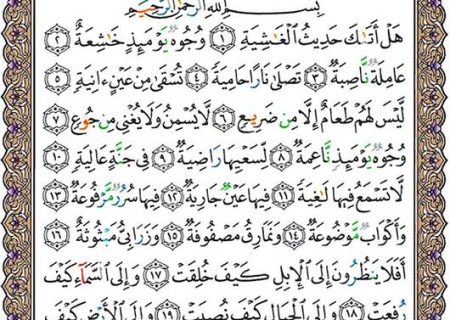 بِسْمِ اللَّهِ الرَّحْمَٰنِ الرَّحِيمِ
هَلْ أَتَىٰكَ حَدِيثُ ٱلْغَٰشِيَةِ ١ وُجُوهٌ يَوْمَئِذٍ خَٰشِعَةٌ ٢
عَامِلَةٌ نَّاصِبَةٌ ٣ تَصْلَىٰ نَارًا حَامِيَةً ٤ تُسْقَىٰ مِنْ عَيْنٍ ءَانِيَةٍ ٥
لَّيْسَ لَهُمْ طَعَامٌ إِلَّا مِن ضَرِيعٍ ٦ لَّا يُسْمِنُ وَلَا يُغْنِي مِن جُوعٍ ٧
وُجُوهٌ يَوْمَئِذٍ نَّاعِمَةٌ ٨ لِّسَعْيِهَا رَاضِيَةٌ ٩ فِي جَنَّةٍ عَالِيَةٍ ١٠
لَّا تَسْمَعُ فِيهَا لَٰغِيَةً ١١ فِيهَا عَيْنٌ جَارِيَةٌ ١٢ فِيهَا سُرُرٌ مَّرْفُوعَةٌ ١٣
وَأَكْوَابٌ مَّوْضُوعَةٌ ١٤ وَنَمَارِقُ مَصْفُوفَةٌ ١٥ وَزَرَابِيُّ مَبْثُوثَةٌ ١٦
أَفَلَا يَنظُرُونَ إِلَى ٱلْإِبِلِ كَيْفَ خُلِقَتْ ١٧ وَإِلَى ٱلسَّمَآءِ كَيْفَ
رُفِعَتْ ١٨ وَإِلَى ٱلْجِبَالِ كَيْفَ نُصِبَتْ ١٩ وَإِلَى ٱلْأَرْضِ كَيْفَ